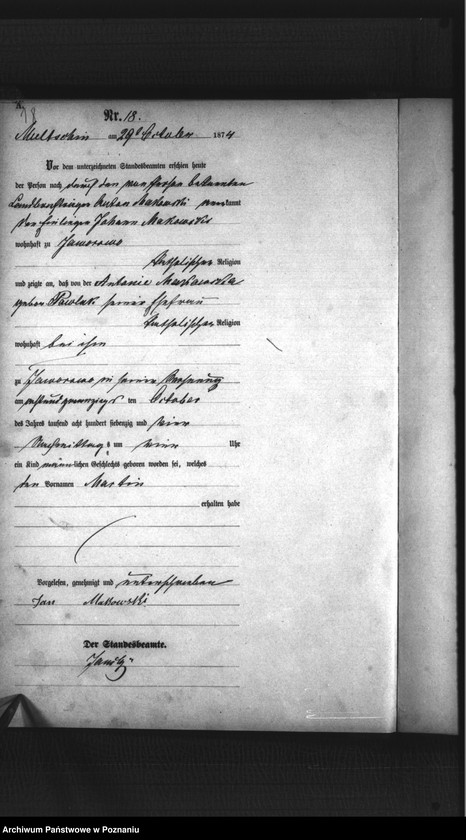 18
Nr. 18.
Meltschin am 29t October 1874
Vor dem unterzeichneten Standesbeamten erschien heute
der Person nach durch den von Person bekannten
Anton Makowski anerkannt
Johann Makowski
wohnhaft zu Jaworowo
katholischer Religion
und zeigte an, daß von der Antonie
geborene Pawlak seiner Ehefrau
katholischer Religion
wohnhaft bei ihm
zu Jaworowo in seiner Wohnung
am ten October
des Jahres tausend acht hundert siebenzig und vier
Nachmittags um vier Uhr
ein Kind männlichen Geschlechts geboren worden sei, welches
den Vornamen Martin
erhalten habe
Vorgelesen, genehmigt und unterschrieben
Jan Makowski
Der Standesbeamte.
Archiwum Państwowe w Poznaniu